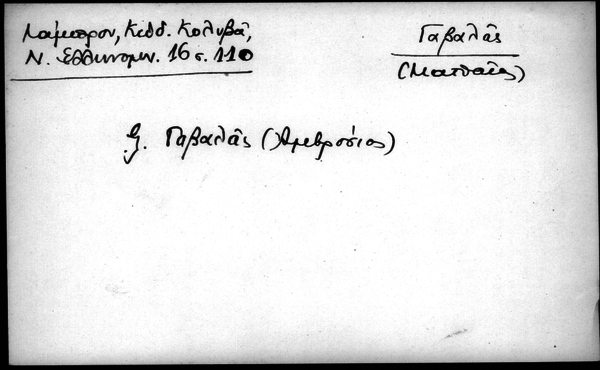 Λάμπρου, Κώδ. Κολυβᾶ,
Ν. Ἑλληνομν. 16 σ. 110
Γαβαλᾶς
(Ματθαῖος)
Γαβαλᾶς (Ἀμβρόσιος)